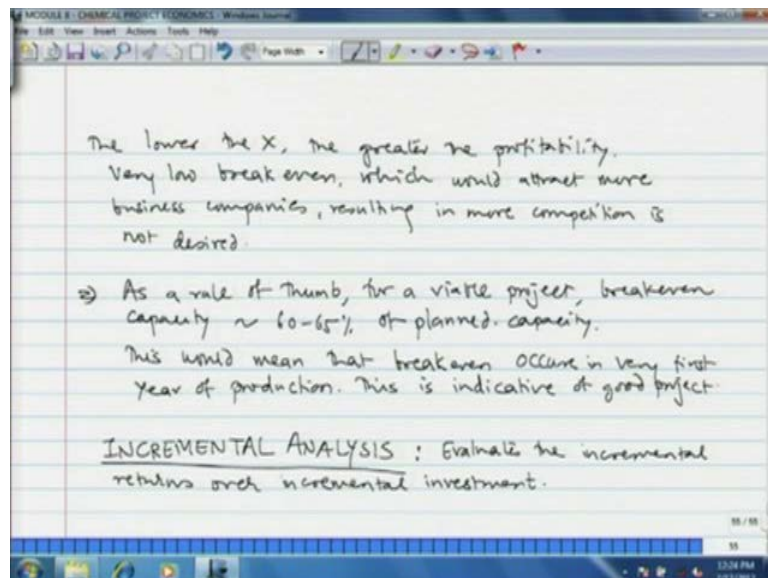 MODULE 8 - CHEMICAL PROJECT ECONOMICS - Windows Journal
File Edit View Insert Actions Tools Help
Page Width
The lower the X, the greater the profitability.
Very low break even, which would attract more
business companies, resulting in more competition is
not desired.
⇒) As a rule of thumb, for a viable project, breakeven
capacity ~ 60-65% of planned. capacity.
This would mean that breakeven occurs in very first
year of production. This is indicative of good project.
INCREMENTAL ANALYSIS : Evaluates the incremental
returns over incremental investment.
55 / 55
55
12:24 PM